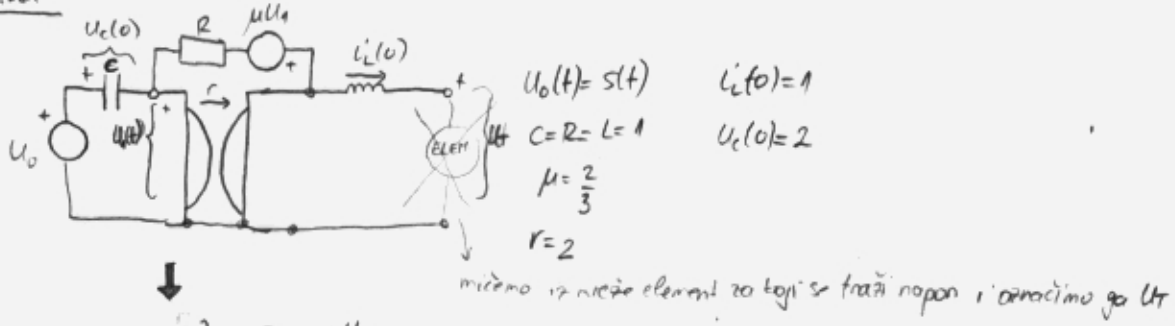 U_c(0)
R
μU_1
+
C
+
i_L(0)
+
r
+
+
U_0
ELEM
U_T
U_0(t) = S(t)
i_L(0) = 1
C = R = L = 1
U_c(0) = 2
μ = 2/3
r = 2
mičemo iz mreže element za koji se traži napon i označimo ga U_T